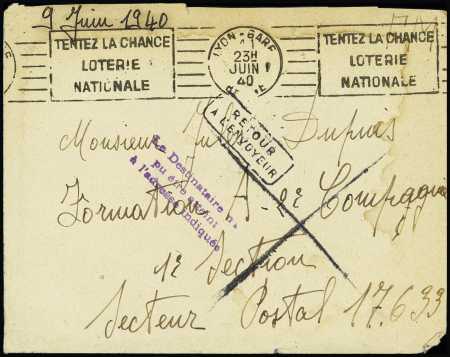 9 Juin 1940
TENTEZ LA CHANCE
LOTERIE
NATIONALE
LYON-GARE
23H
JUIN
40
TENTEZ LA CHANCE
LOTERIE
NATIONALE
RETOUR
A L'ENVOYEUR
Monsieur Dupuis
Le Destinataire n'a
pu être atteint
à l'adresse indiquée
Formation A 2e Compagnie
1e Section
Secteur Postal 17.633